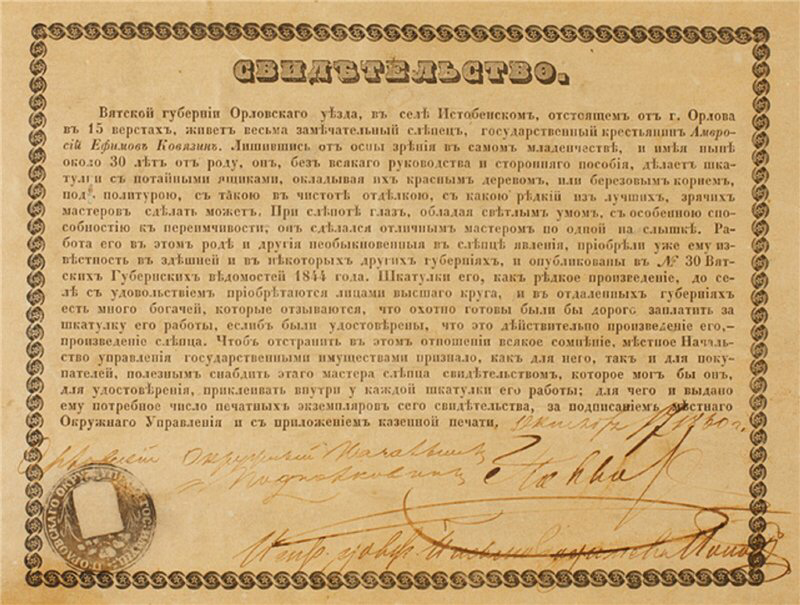 СВИДѢТЕЛЬСТВО.
Вятской губерніи Орловскаго уѣзда, въ селѣ Истобенскомъ, отстоящемъ отъ г. Орлова
въ 15 верстахъ, живетъ весьма замѣчательный слѣпецъ, государственный крестьянинъ Амвро-
сій Ефимовъ Ковязинъ. Лишившись отъ оспы зрѣнія въ самомъ младенчествѣ, и имѣя нынѣ
около 30 лѣтъ отъ роду, онъ, безъ всякаго руководства и сторонняго пособія, дѣлаетъ шка-
тулки съ потайными ящиками, окладывая ихъ краснымъ деревомъ, или березовымъ корнемъ,
подъ политурою, съ такою въ чистотѣ отдѣлкою, съ какою рѣдкій изъ лучшихъ, зрячихъ
мастеровъ сдѣлать можетъ. При слѣпотѣ глазъ, обладая свѣтлымъ умомъ, съ особенною спо-
собностію къ переимчивости, онъ сдѣлался отличнымъ мастеромъ по одной на слышкѣ. Ра-
бота его въ этомъ родѣ и другія необыкновенныя въ слѣпцѣ явленія, пріобрѣли уже ему из-
вѣстность въ здѣшней и въ нѣкоторыхъ другихъ губерніяхъ, и опубликованы въ № 30 Вят-
скихъ Губернскихъ вѣдомостей 1844 года. Шкатулки его, какъ рѣдкое произведеніе, до се-
лѣ съ удовольствіемъ пріобрѣтаются лицами высшаго круга, и въ отдаленныхъ губерніяхъ
есть много богачей, которые отзываются, что охотно готовы были бы дорого заплатить за
шкатулку его работы, еслибъ были удостовѣрены, что это дѣйствительно произведеніе его,–
произведеніе слѣпца. Чтобъ отстранить въ этомъ отношеніи всякое сомнѣніе, мѣстное Началь-
ство управленія государственными имуществами признало, какъ для него, такъ и для поку-
пателей, полезнымъ снабдить этаго мастера слѣпца свидѣтельствомъ, которое могъ бы онъ,
для удостовѣренія, приклеивать внутри у каждой шкатулки его работы; для чего и выдано
ему потребное число печатныхъ экземпляровъ сего свидѣтельства, за подписаніемъ мѣстнаго
Окружнаго Управленія и съ приложеніемъ казенной печати,
Окружный Начальникъ
Подполковникъ